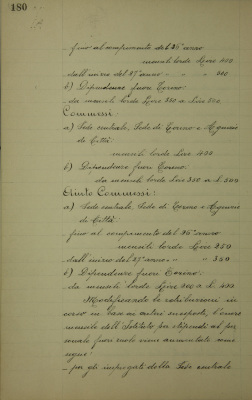 180
- fino al compimento del 26° anno
mensili lorde Lire 400
- dall'inizio del 27° anno " " 
b) Dipendenze fuori Torino:
- da mensili lorde Lire a Lire
Commessi:
a) Sede centrale, Sede di Torino e Agenzie
di Città
mensili lorde Lire 400
b) Dipendenze fuori Torino:
da mensili lorde Lire 350 a L. 500
Aiuto Commessi:
a) Sede centrale, Sede di Torino e Agenzie
di Città
- fino al compimento del 26° anno
mensili lorde Lire 250
- dall'inizio del 27° anno " " 350
b) Dipendenze fuori Torino:
- da mensili lorde Lire 200 a L. 400
Modificando le retribuzioni in
corso in base ai criteri suesposti, l'onere
mensile dell'Istituto per stipendi al per-
sonale fuori ruolo viene aumentato come
segue:
- per gli impiegati della Sede centrale